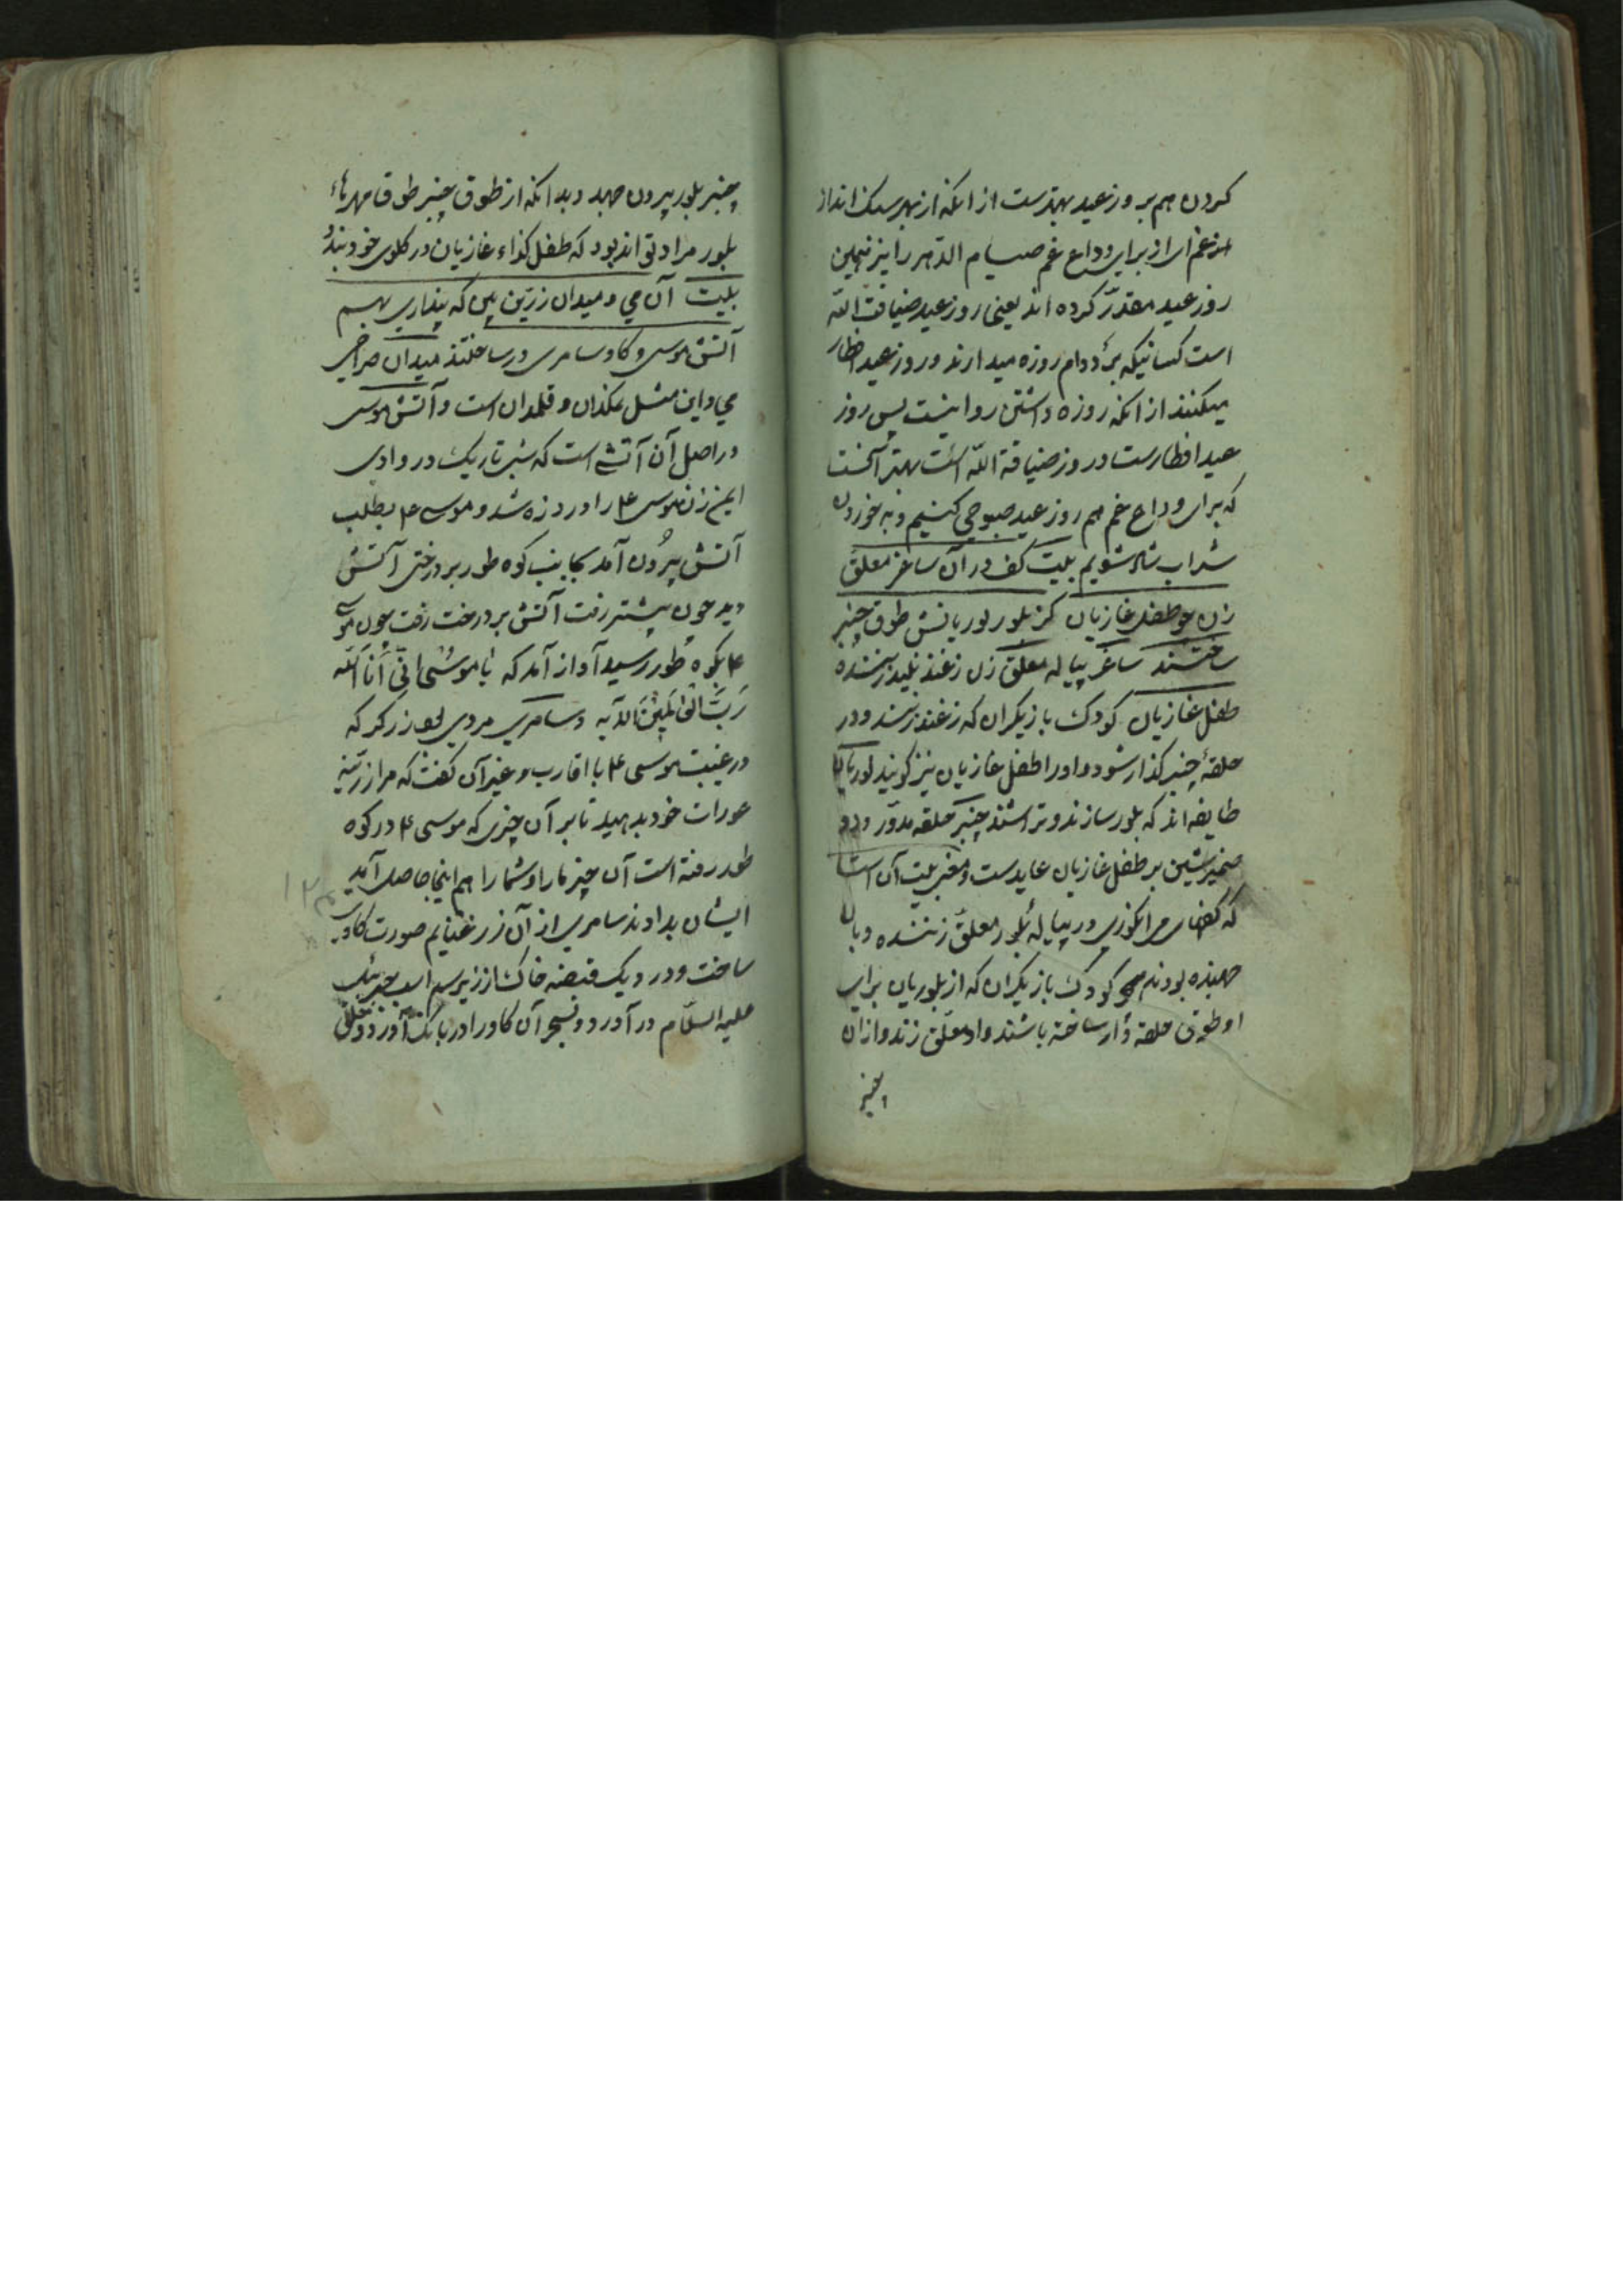 کردن هم بروز عید بهترست از انکه از بهر سنک انداز
غم از برای وداع غم صیام الدهر را نیز همین
روز عید مقدّر کرده اند یعنی روز عید ضیافت اللّه
است کسانیکه بر دوام روزه میدارند و روز عید افطار
میکنند از انکه روزه داشتن روا نیست پس روز
عید افطارست و روز ضیافة اللّه است بهتر آنست
که برای وداع غم هم روز عید صبوحی کنیم و به خوردن
شراب شاد شویم بیت کف در آن ساغر معلّق
زن چو طفل غازیان کز بلور لوریانش طوق چنبر
ساختند ساغر پیاله معلّق زن زغند زننده
طفل غازیان کودک بازیکران که زغند زنند و در
حلقهٔ چنبر کذار شود و او را طفل غازیان نیز کویند لوریان
طایفه اند که بلور سازند و تراشند چنبر حلقه مدوّر و
ضمیر شین بر طفل غازیان عایدست و معنی بیت آن است
که کفهای می انکوری در پیاله بلور معلّق زننده و بالا
جهنده بودند کودک بازیکران که از بلوریان برای
او طوق حلقه وار ساخته باشند و او معلّق زند و از آن
چنبر
چنبر بلور بیرون جهد و بدانکه از طوق چنبر طوق مهرهاء
بلور مراد تواند بود که طفل غازیان در کلوی خود بندد
بیت آن می و میدان زرّین بین که پنداری بهم
آتش موسی و کاو سامری در ساختند میدان صراحی
می و این مثل نمکدان و قلمدان است و آتش موسی
در اصل آن آتشی است که شب تاریک در وادی
ایمن زن موسی ع م را درد زه شد و موسی ع م بطلب
آتش بیرون آمد بجانب کوه طور بر درختی آتش
دید چون پیشتر رفت آتش بر درخت رفت چون موسی
ع م بکوه طور رسید آواز آمد که یا موسی انّی اَنَا اللّه
رَبّ العالمین الآیه و سامری مردی بود زرکر که
در غیبت موسی ع م با اقارب و غیر آن کفت که مرا زرّینه
عورات خود بدهید تا بر آن چیزی که موسی ع م در کوه
طور رفته است آن چیز ما را و شما را هم اینجا حاصل آید
ایشان بدادند سامری از آن زر غنایم صورت کاوی
ساخت و در و یک قبضه خاک از زیر سم اسپ جبرئیل
علیه السلام در آورد و بسحر آن کاو را در بانک آورد و خلق